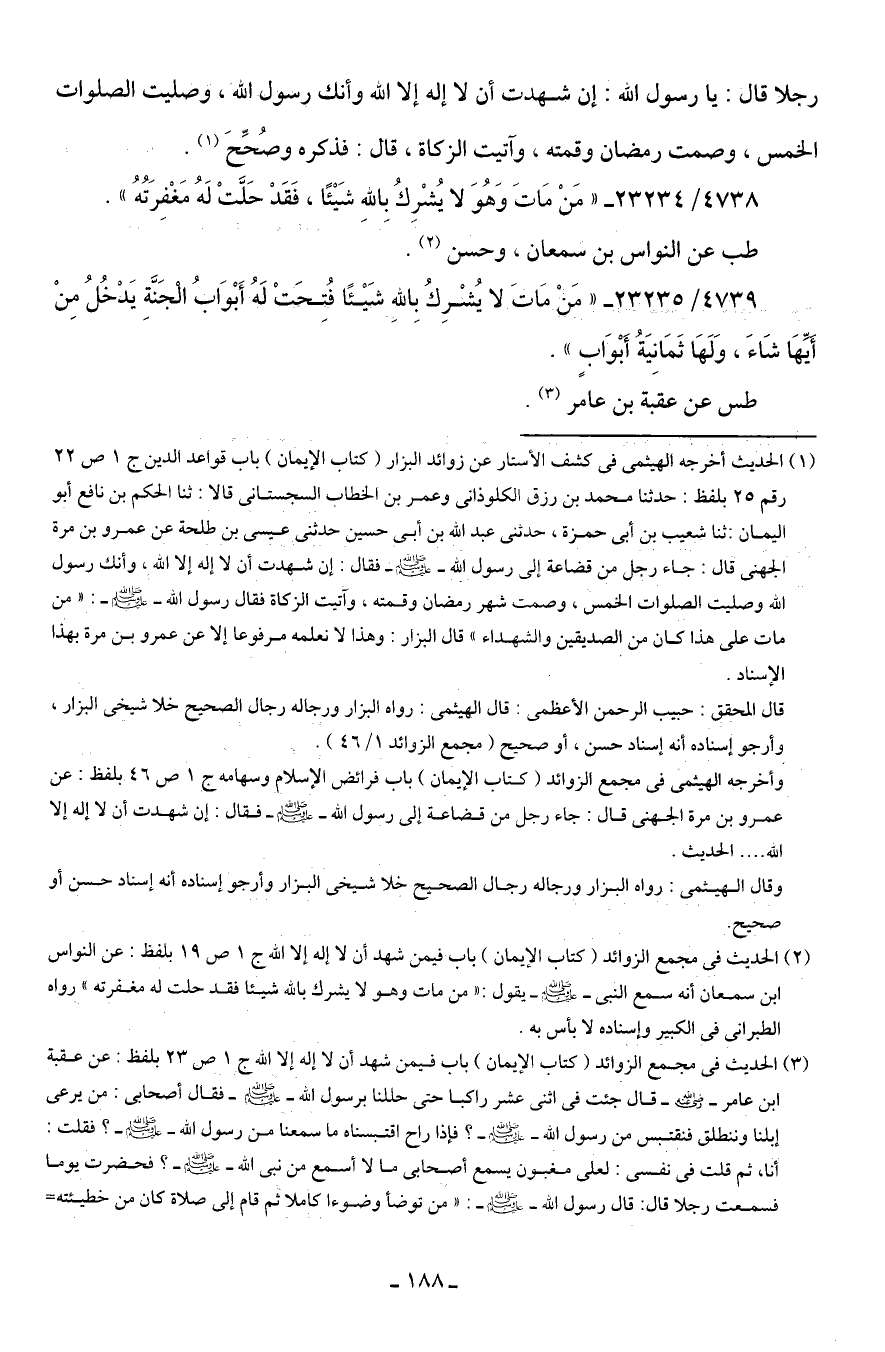 رجلا قال : يا رسول الله : إن شهدت أن لا إله إلا الله وأنك رسول الله ، وصليت الصلوات
الخمس ، وصمت رمضان وقمته ، وآتيت الزكاة ، قال : فذكره وصُحِّحَ (١) .
٤٧٣٨/ ٢٣٢٣٤ـ « مَنْ مَاتَ وَهُوَ لا يُشْرِكُ بِاللهِ شَيْئًا ، فَقَدْ حَلَّتْ لَهُ مَغْفِرَتُهُ » .
طب عن النواس بن سمعان ، وحسن (٢) .
٤٧٣٩/ ٢٣٢٣٥ـ « مَنْ مَاتَ لا يُشْرِكُ بِاللهِ شَيْئًا فُتِحَتْ لَهُ أَبْوَابُ الْجَنَّةِ يَدْخُلُ مِنْ
أَيِّهَا شَاءَ ، وَلَهَا ثَمَانِيَةُ أَبْوَابٍ » .
طس عن عقبة بن عامر (٣) .
(١) الحديث أخرجه الهيثمى فى كشف الأستار عن زوائد البزار ( كتاب الإيمان ) باب قواعد الدين ج ١ ص ٢٢
رقم ٢٥ بلفظ : حدثنا محمد بن رزق الكلوذانى وعمر بن الخطاب السجستانى قالا : ثنا الحكم بن نافع أبو
اليمان :ثنا شعيب بن أبى حمزة ، حدثنى عبد الله بن أبى حسين حدثنى عيسى بن طلحة عن عمرو بن مرة
الجهنى قال : جاء رجل من قضاعة إلى رسول الله ـ ﷺ ـ فقال : إن شهدت أن لا إله إلا الله ، وأنك رسول
الله وصليت الصلوات الخمس ، وصمت شهر رمضان وقمته ، وآتيت الزكاة فقال رسول الله ـ ﷺ ـ : « من
مات على هذا كان من الصديقين والشهداء » قال البزار : وهذا لا نعلمه مرفوعا إلا عن عمرو بن مرة بهذا
الإسناد .
قال المحقق : حبيب الرحمن الأعظمى : قال الهيثمى : رواه البزار ورجاله رجال الصحيح خلا شيخى البزار ،
وأرجو إسناده أنه إسناد حسن ، أو صحيح ( مجمع الزوائد ١/ ٤٦ ) .
وأخرجه الهيثمى فى مجمع الزوائد ( كتاب الإيمان ) باب فرائض الإسلام وسهامه ج ١ ص ٤٦ بلفظ : عن
عمرو بن مرة الجهنى قال : جاء رجل من قضاعة إلى رسول الله ـ ﷺ ـ فقال : إن شهدت أن لا إله إلا
الله.... الحديث .
وقال الهيثمى : رواه البزار ورجاله رجال الصحيح خلا شيخى البزار وأرجو إسناده أنه إسناد حسن أو
صحيح.
(٢) الحديث فى مجمع الزوائد ( كتاب الإيمان ) باب فيمن شهد أن لا إله إلا الله ج ١ ص ١٩ بلفظ : عن النواس
ابن سمعان أنه سمع النبى ـ ﷺ ـ يقول :« من مات وهو لا يشرك بالله شيئا فقد حلت له مغفرته » رواه
الطبرانى فى الكبير وإسناده لا بأس به .
(٣) الحديث فى مجمع الزوائد ( كتاب الإيمان ) باب فيمن شهد أن لا إله إلا الله ج ١ ص ٢٣ بلفظ : عن عقبة
ابن عامر ـ رضي الله عنه ـ قال جئت فى اثنى عشر راكبا حتى حللنا برسول الله ـ ﷺ ـ فقال أصحابى : من يرعى
إبلنا وننطلق فنقتبس من رسول الله ـ ﷺ ـ ؟ فإذا راح اقتبسناه ما سمعنا من رسول الله ـ ﷺ ـ ؟ فقلت :
أنا، ثم قلت فى نفسى : لعلى مغبون يسمع أصحابى ما لا أسمع من نبى الله ـ ﷺ ـ ؟ فحضرت يوما
فسمعت رجلا قال: قال رسول الله ـ ﷺ ـ : « من توضأ وضوءا كاملا ثم قام إلى صلاة كان من خطيئته=
ـ ١٨٨ ـ